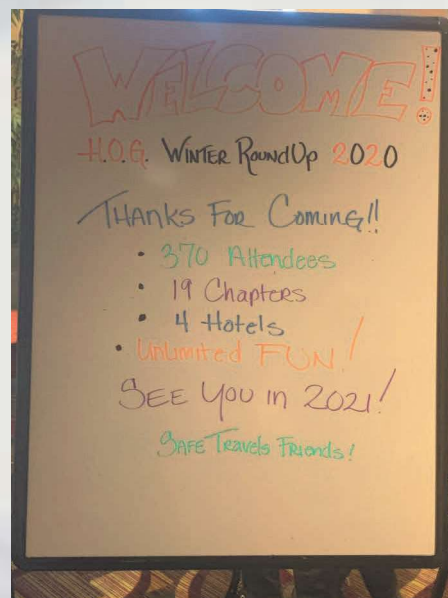 WELCOME!
H.O.G. WINTER ROUNDUP 2020
THANKS FOR COMING!!
• 370 Attendees
• 19 Chapters
• 4 Hotels
• Unlimited FUN!
SEE YOU in 2021!
SAFE Travels Friends!